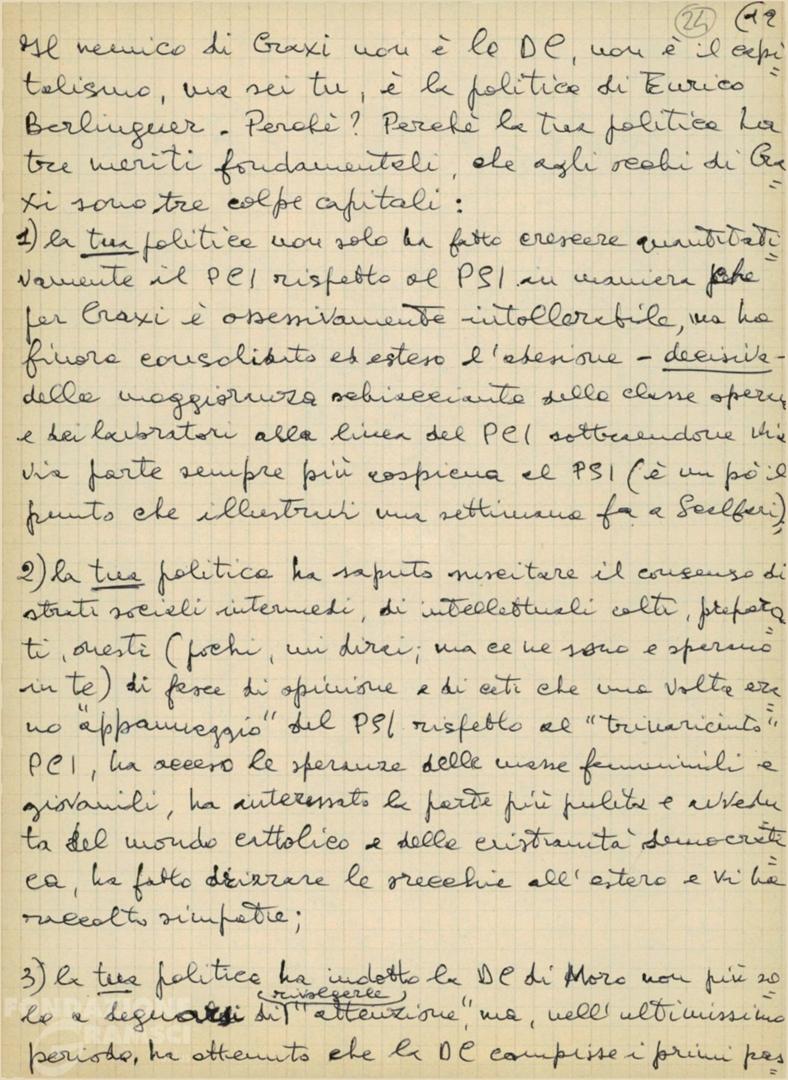 24 (12
Il nemico di Craxi non è la DC, non è il capi=
talismo, ma sei tu, è la politica di Enrico
Berlinguer. Perchè? Perchè la tua politica ha
tre meriti fondamentali, che agli occhi di Cra=
xi sono tre colpe capitali:
1) la tua politica non solo ha fatto crescere quantitati=
vamente il PCI rispetto al PSI in maniera che
per Craxi è ossessivamente intollerabile, ma ha
finora consolidato ed esteso l'adesione - decisiva -
della maggioranza schiacciante della classe operaia
e dei lavoratori alla linea del PCI sottraendone via
via parte sempre più cospicua al PSI (è un pò il
punto che illustravi una settimana fa a Scalfari);
2) la tua politica ha saputo suscitare il consenso di
strati sociali intermedi, di intellettuali colti, prepara=
ti, onesti (pochi, mi dirai; ma ce ne sono e sperano
in te) di fasce di opinione e di ceti che una volta era=
no "appannaggio" del PSI rispetto al "trinariciuto"
PCI, ha acceso le speranze delle masse femminili e
giovanili, ha interessato la parte più pulita e avvedu=
ta del mondo cattolico e della cristianità democrati=
ca, ha fatto drizzare le orecchie all'estero e vi ha
raccolto simpatie;
3) la tua politica ha indotto la DC di Moro non più so=
lo a degnarsi di rivolgerle "attenzione", ma, nell'ultimissimo
periodo, ha ottenuto che la DC compisse i primi pas=
FONDAZIONE GRAMSCI